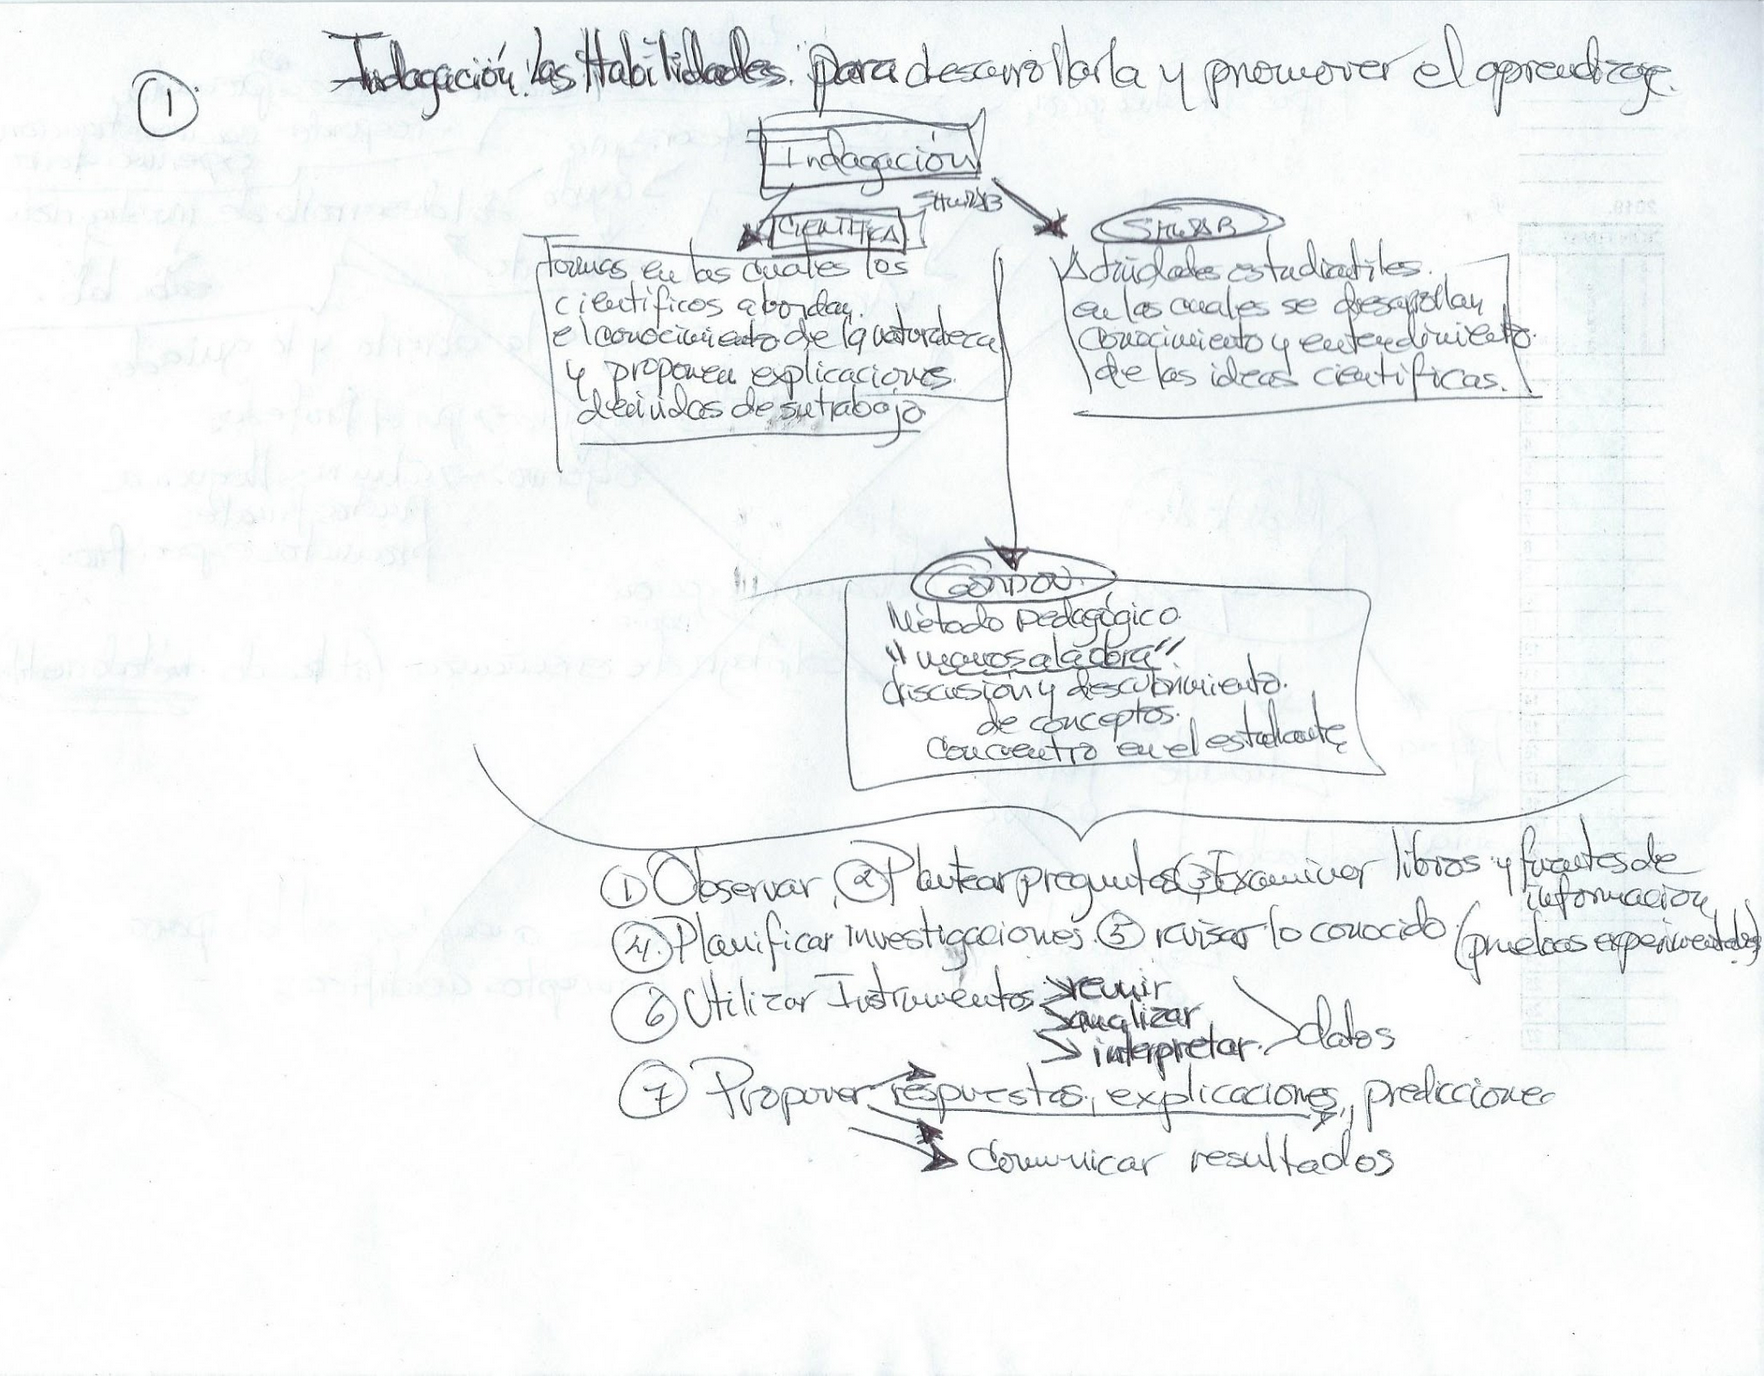 ①
Indagación: las Habilidades para desarrollarla y promover el aprendizaje.
Indagación
CIENTIFICA
formas en las cuales los
científicos abordan
el conocimiento de la naturaleza
y proponen explicaciones
derividas de su trabajo
Actividades estudiantiles
en las cuales se desarrollan
conocimiento y entendimiento
de las ideas científicas.
Método Pedagógico
"manos a la obra"
discusión y descubrimiento
de conceptos.
Concentro en el estudiante
① Observar, ② Plantear preguntas ③ Examinar libros y fuentes de
información
④ Planificar investigaciones. ⑤ revisar lo conocido (pruebas experimentales)
⑥ Utilizar Instrumentos reunir
analizar
interpretar datos
⑦ Proponer respuestas, explicaciones, prediccione
comunicar resultados